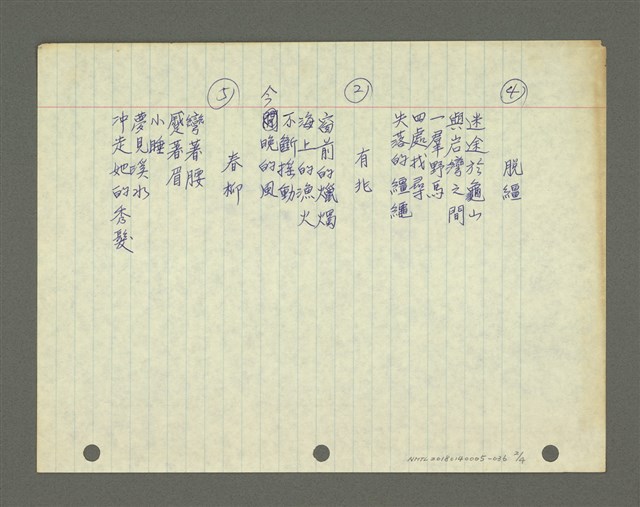 ④
脫韁
迷途於龜山
與岩灣之間
一羣野馬
四處找尋
失落的韁繩
②
有兆
窗前的蠟燭
海上的漁火
不斷搖動
今晚的風
⑤
春柳
彎著腰
蹙著眉
小睡
夢見溪水
冲走她的秀髮
NMTL20180140005-036 2/4